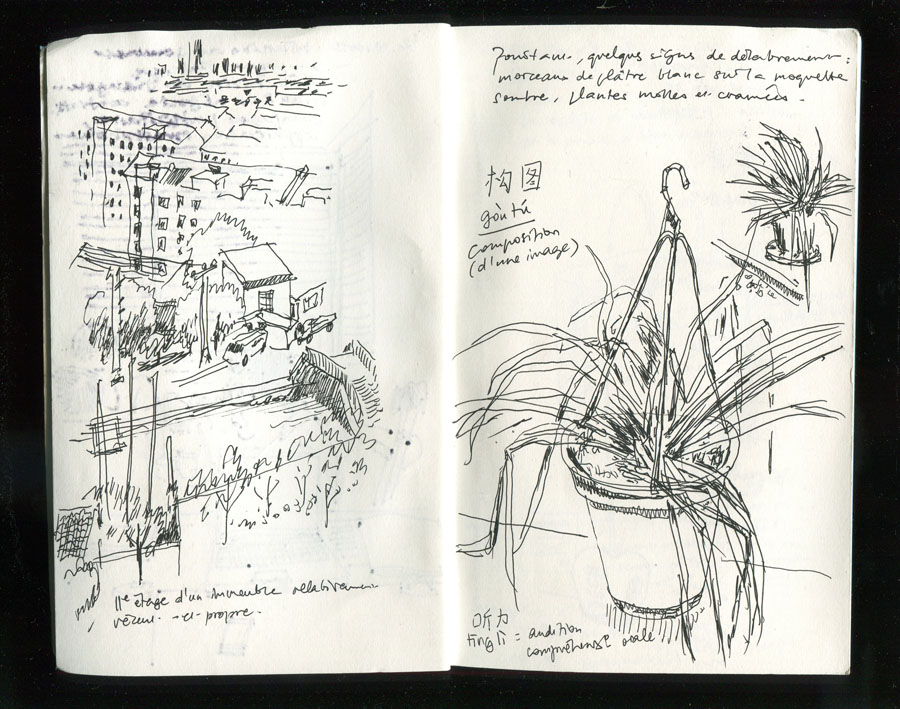 11e étage d'un immeuble relativement
récent et propre.
Pourtant, quelques signes de délabrement :
morceaux de plâtre blanc sur la moquette
sombre, plantes molles et cramées.
构图
gòu tú
composition
(d'une image)
听力
tīng lì = audition
compréhension orale